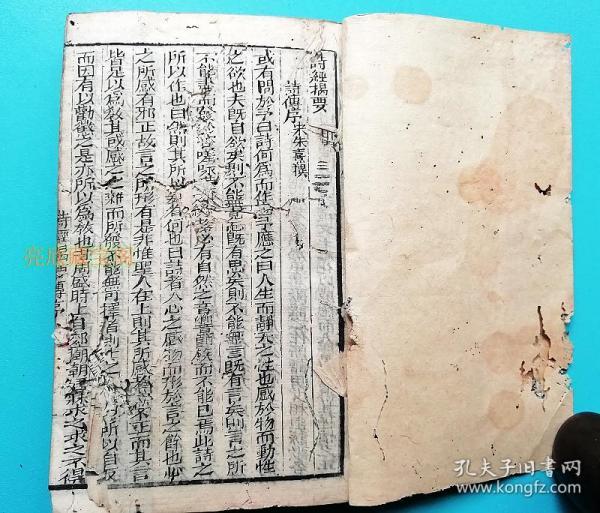 詩經揭要
詩傳序 宋朱熹撰
或有問於予曰詩何為而作予應之曰人生而靜天之性也感於物而動性
之欲也夫既自欲矣則不能無思既有思矣則不能無言既有言矣則言之所
不能盡而發於咨嗟 必有自然之音響 族而不能已焉此詩之
所以作也曰然則其所以教者何也曰詩者人心之感物而形於言之餘也心
之所感有邪正故言之所形有是非惟聖人在上則其所感者無不正而其言
皆足以為教其或感之之雜而所發不能無可擇者則上之 所以自反
而因有以勸懲之是亦所以為教也 周盛時上自郊廟朝
詩經揭要 傳序
孔夫子旧书网
www.kongfz.com